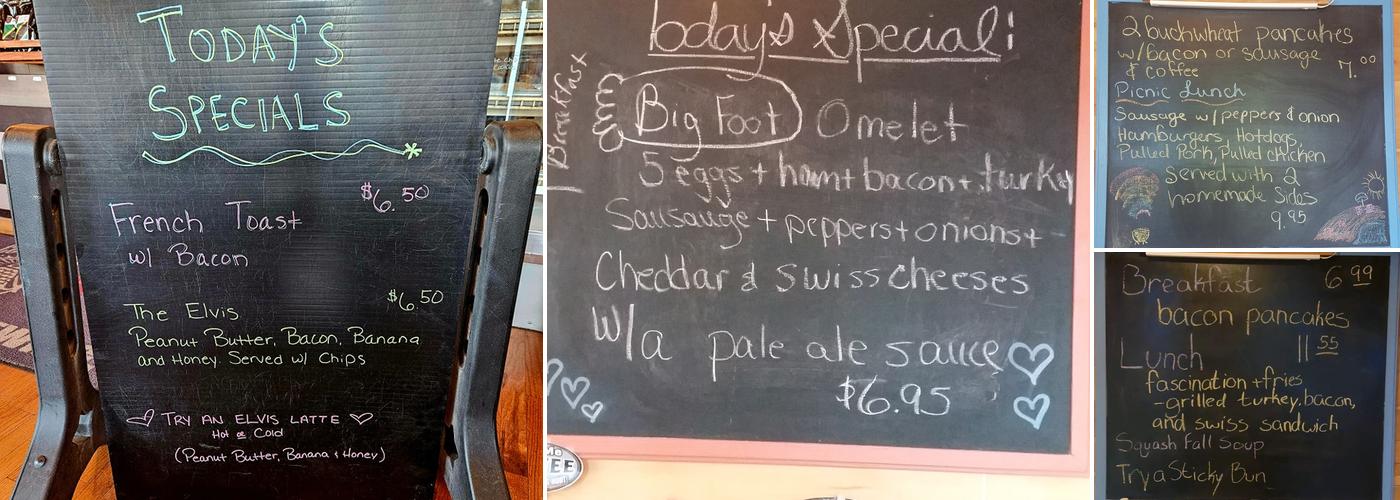 TODAY'S
SPECIALS
$6.50
French Toast
w/ Bacon
$6.50
The Elvis
Peanut Butter, Bacon, Banana
and Honey. Served w/ Chips
TRY AN ELVIS LATTE
Hot or Cold
(Peanut Butter, Banana & Honey)
Today's Special!
Breakfast
Big Foot Omelet
5 eggs + ham + bacon + turkey
Sausauge + peppers + onions +
Cheddar & Swiss cheeses
w/a pale ale sauce
$6.95
2 buckwheat pancakes
w/bacon or sausage
& coffee
7.00
Picnic Lunch
Sausage w/peppers & onion
Hamburgers, Hotdogs,
Pulled Pork, Pulled chicken
Served with 2
homemade Sides
9.95
Breakfast 6 99
bacon pancakes
Lunch 11 55
fascination + fries
- grilled turkey, bacon,
and swiss sandwich
Squash Fall Soup
Try a Sticky Bun